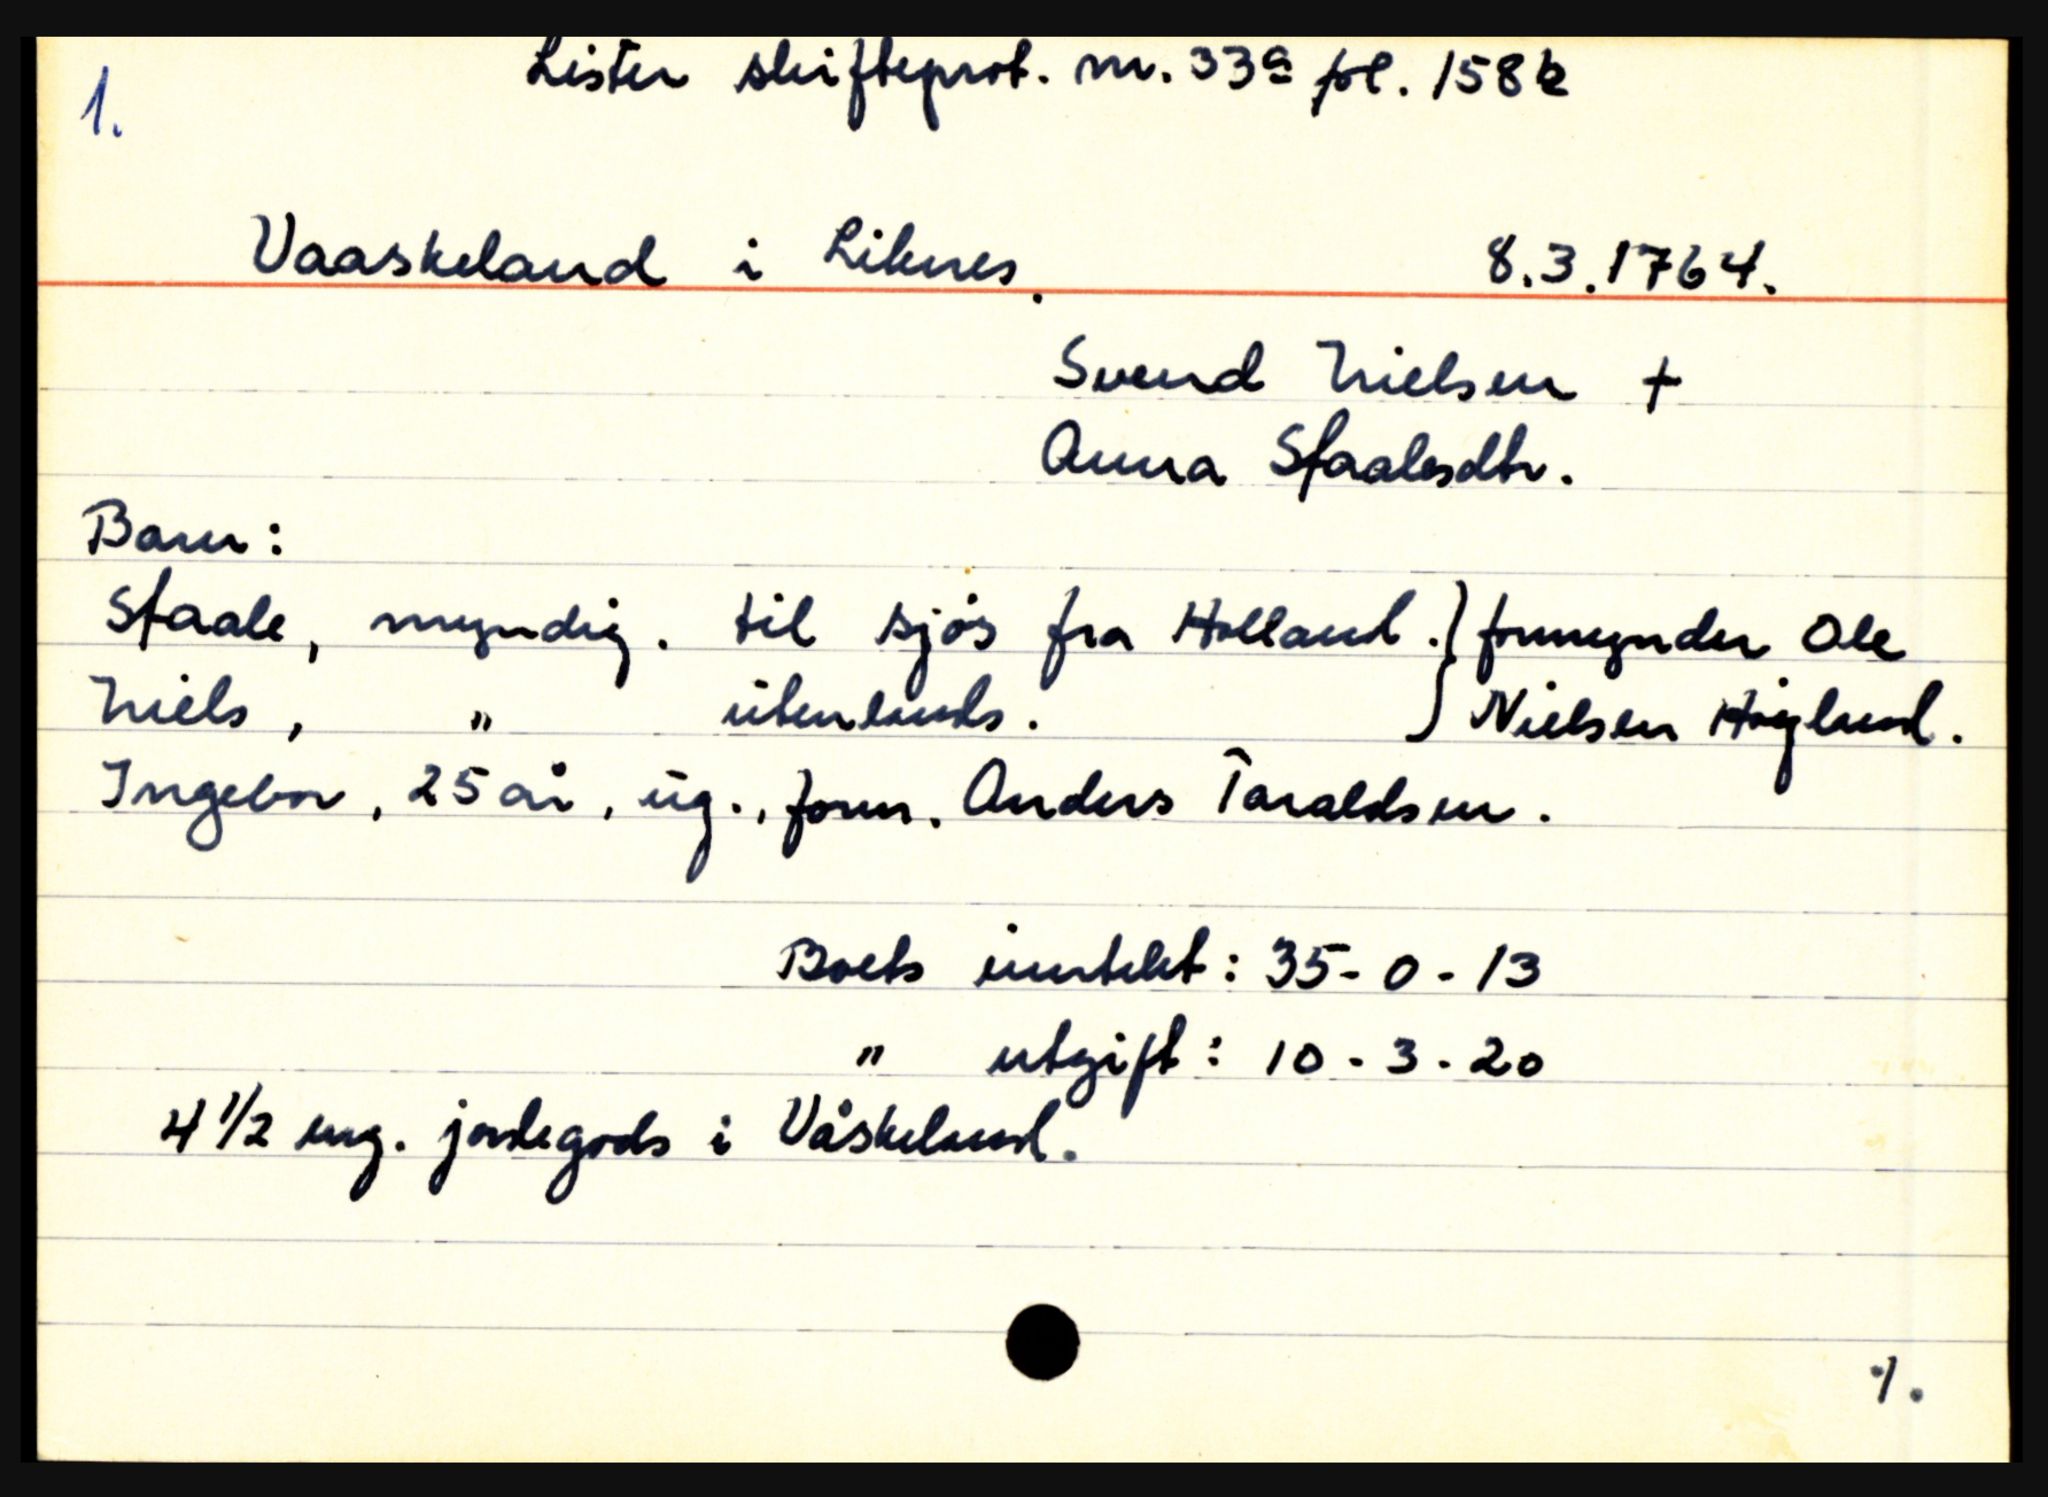 1.
Lister skifteprot. nr. 33a fol. 158b
Vaaskeland i Liknes. 8.3.1764.
Svend Nielsen +
Anna Staalesdtr.
Barn:
Staale, myndig. til sjøs fra Holland. } formynder Ole
Niels, " utenlands. } Nielsen Høyland.
Ingebor, 25 år, ug., form. Anders Taraldsen.
Boets inntekt: 35-0-13
" utgift: 10-3-20
4 1/2 eng. jordegods i Våskeland.